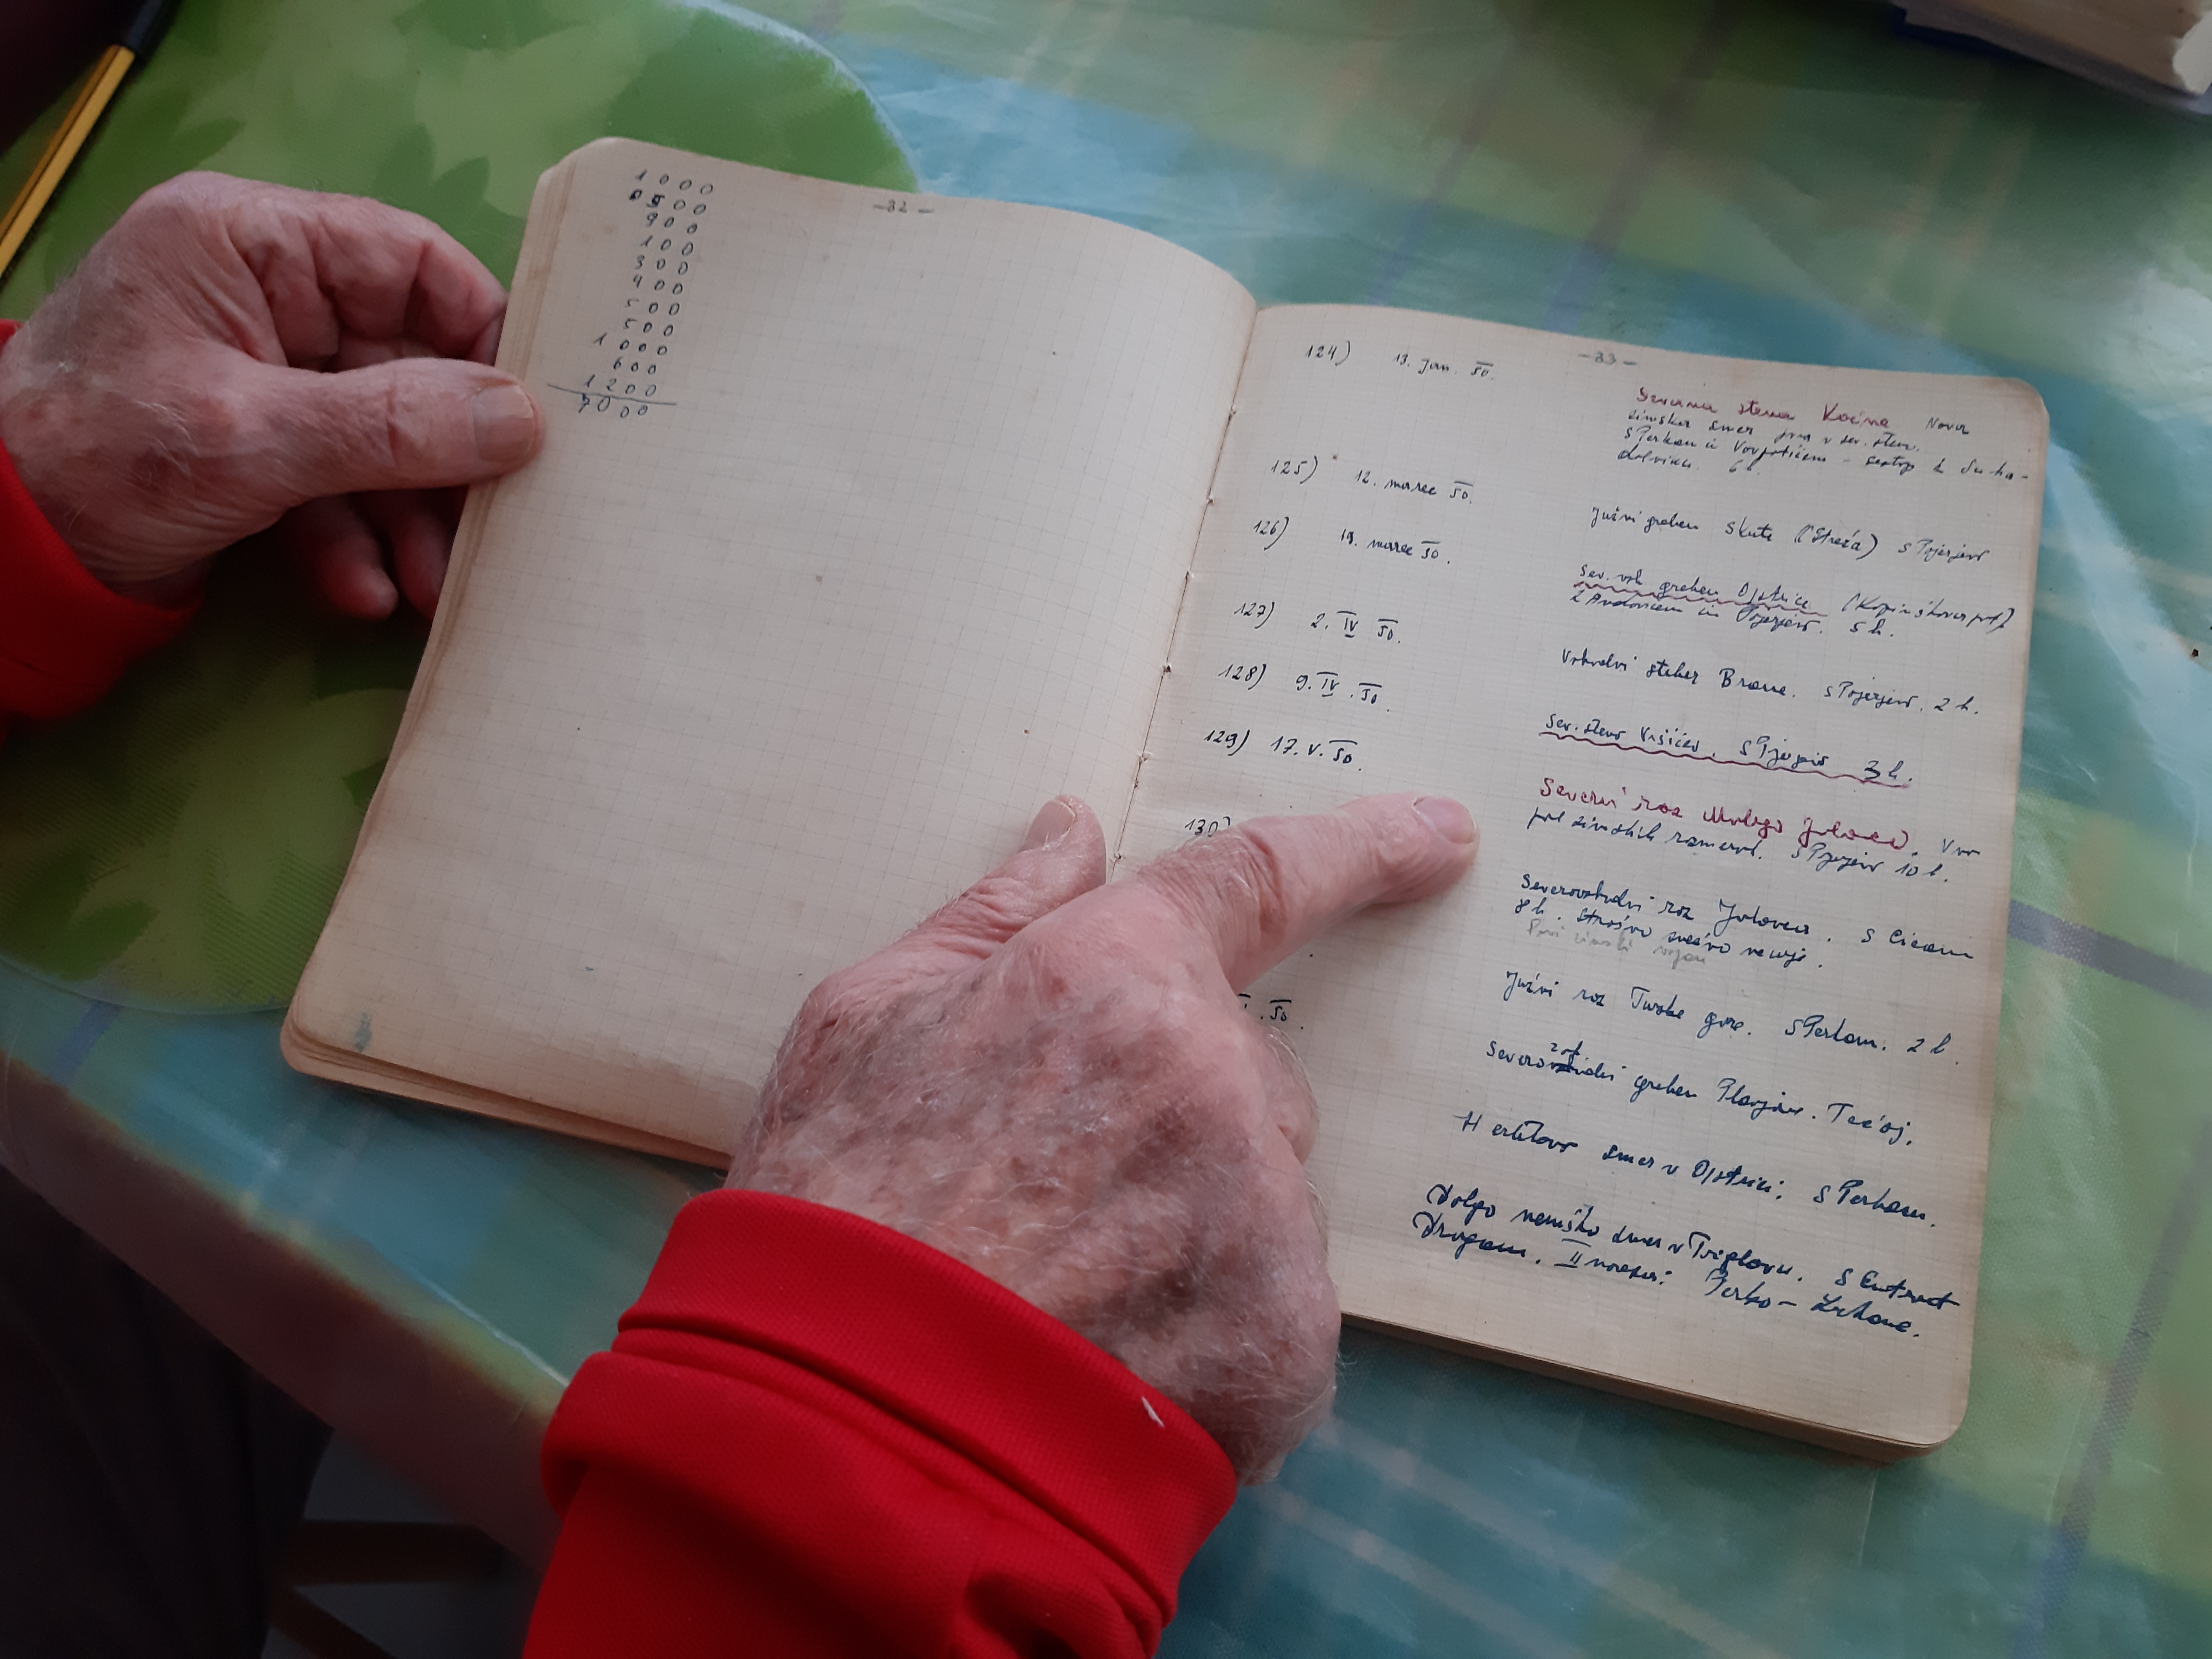 -32-
1000
0500
900
100
300
400
500
500
1000
600
1200
7000
-33-
124) 13. Jan. 50. Severna stena Kočne Nova
zimska smer prva v sev. steni.
s Perkom in - sestop k Suha-
dolniku. 6 h.
125) 12. marec 50. Južni greben Skute (Streža)
126) 19. marec 50. Sev. vzh greben Ojstrice (Kopinškova pot)
in 5 h.
127) 2. IV 50. Vzhodni steber Brane. 2 h.
128) 9. IV. 50. Sev. stena Vršičev. 3 h.
129) 17. V. 50. Severni raz Malega Jalovca. V
zimskih razmerah. 10 h.
130) Severovzhodni raz Jalovca. s Cicom
8 h. Strašno snežno neurje.
Prvi zimski vzpon
Južni raz Turske gore. s Perkom. 2 h.
I. 50. zah
Severo greben Planjave. Tečaj.
Herletova smer v Ojstrici. s Perkom.
Dolgo nemško smer v Triglavu. s
Dragom. II naveza: Perko -